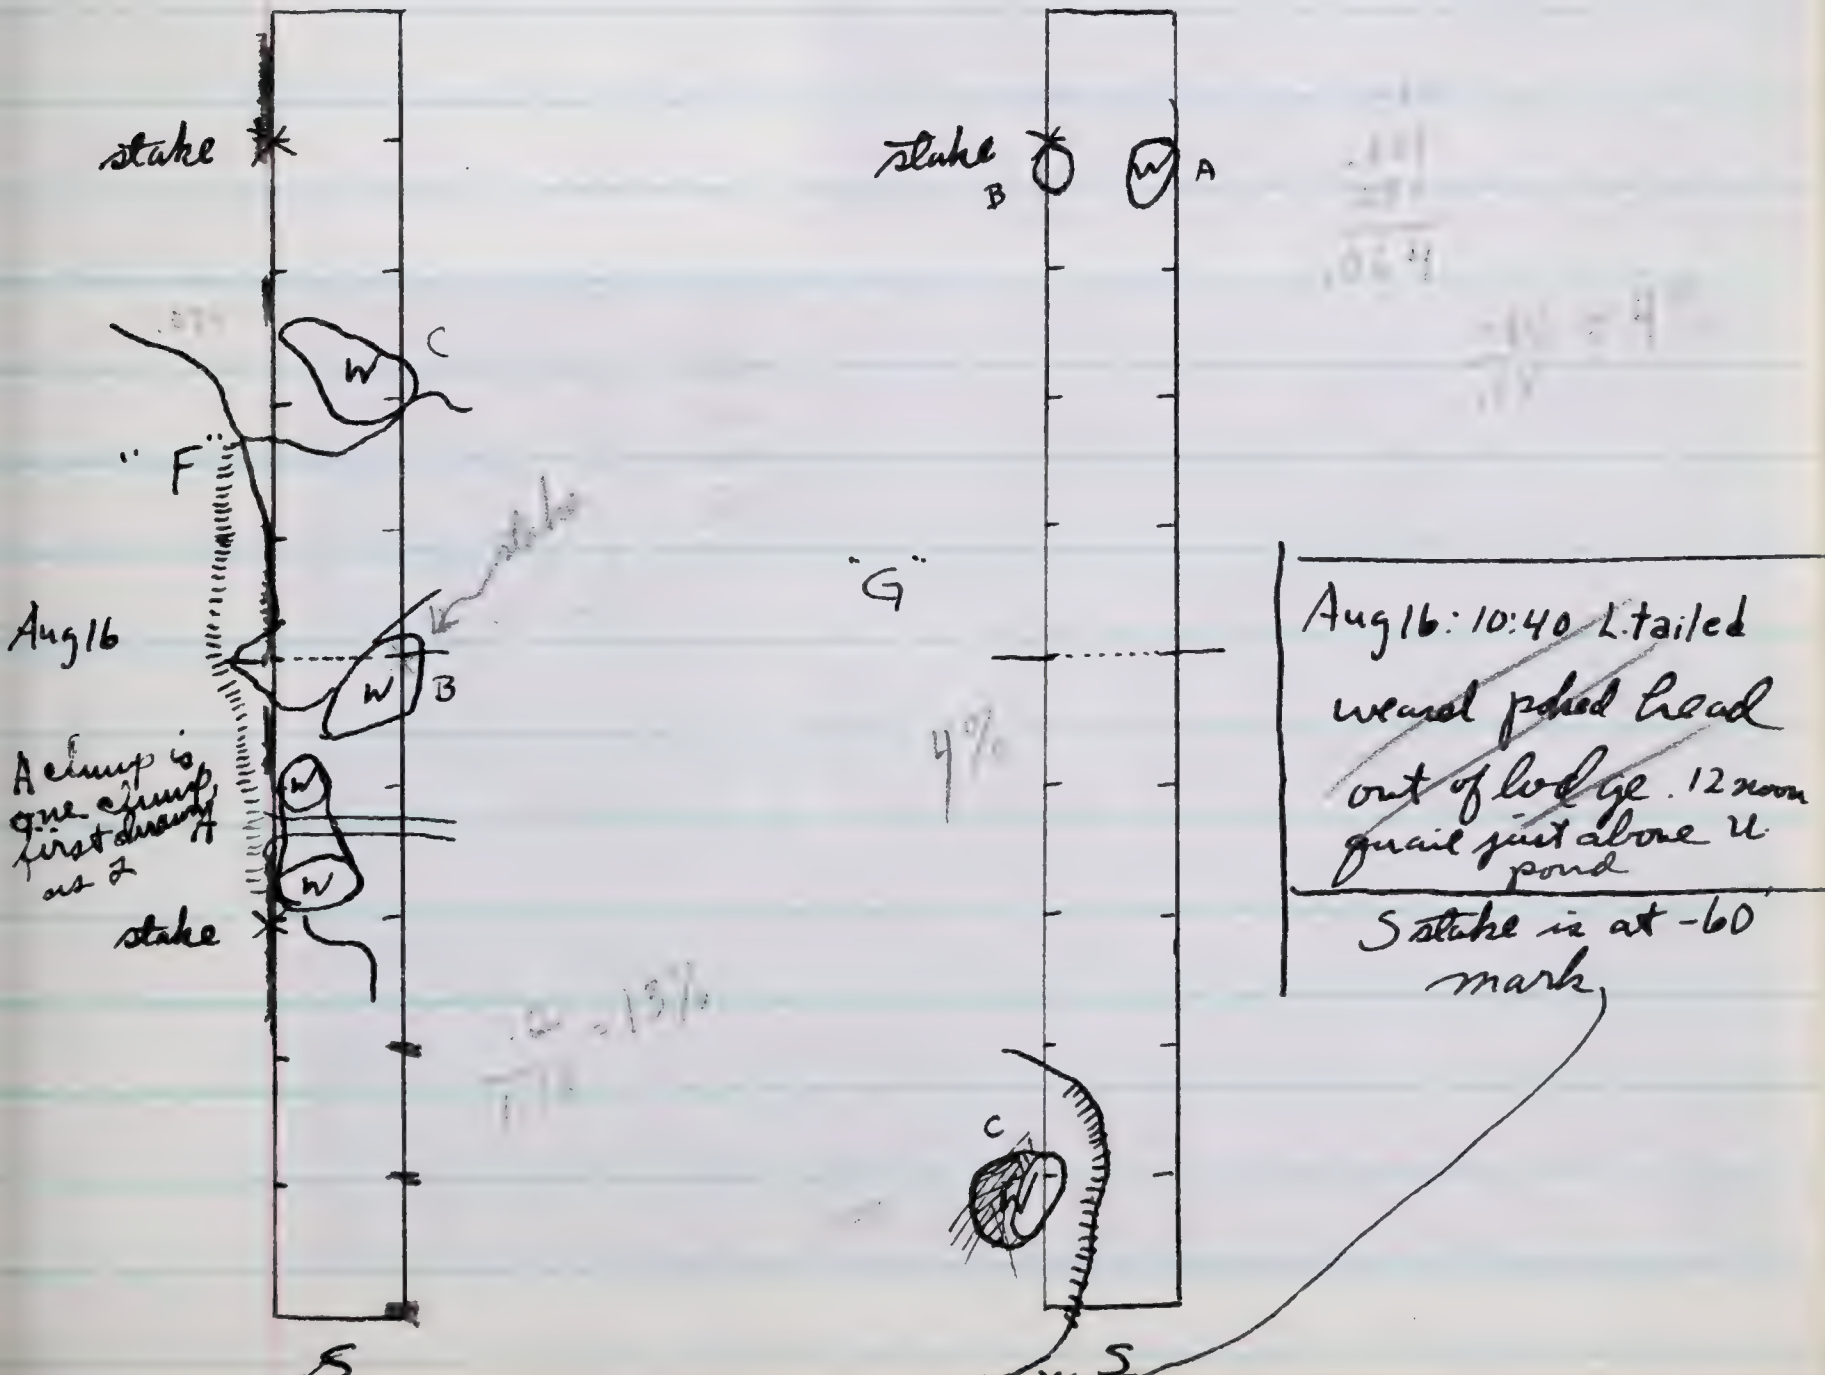 stake
.074
W
C
" F "
stake
Aug 16
W
B
A clump is
one clump,
first drawn
as 2
W
A
W
stake
= 13%
S
stake
B
W
A
.064
= 4%
"G"
4%
C
W
S
Aug 16: 10:40 L. tailed
weasel poked head
out of lodge. 12 noon
quail just above U.
pond
S stake is at -60
mark